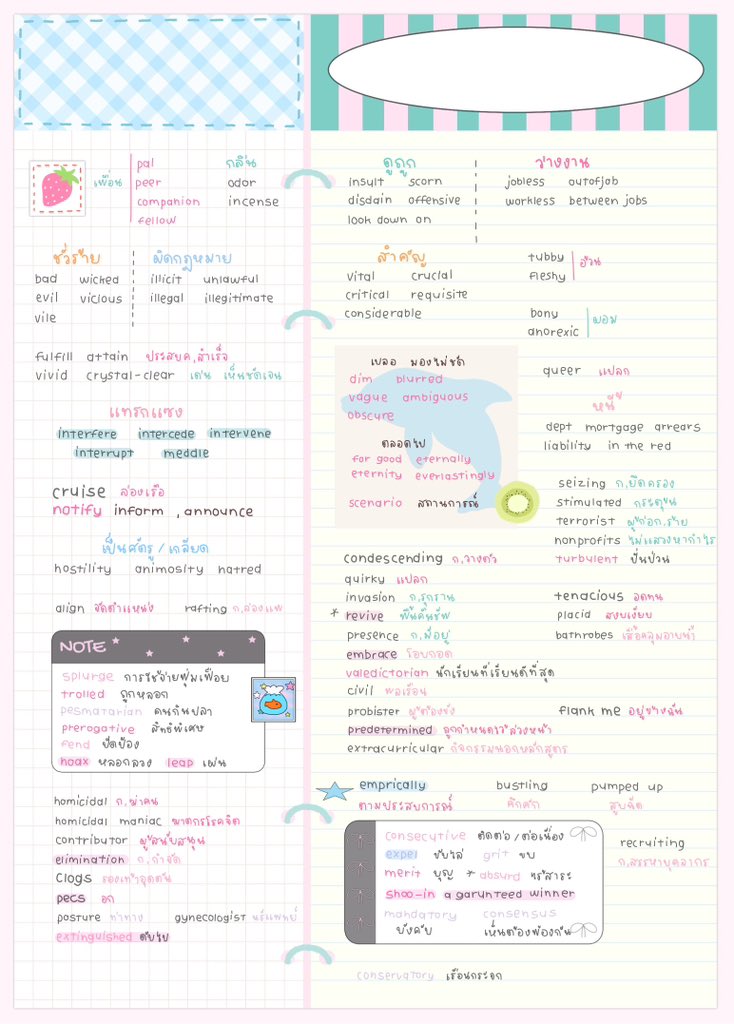 เพื่อน
pal
peer
companion
fellow
กลิ่น
odor
incense
ชั่วร้าย
bad wicked
evil vicious
vile
ผิดกฎหมาย
illicit unlawful
illegal illegitimate
fulfill attain ประสบค,สำเร็จ
vivid crystal-clear เด่น เห็นชัดเจน
แทรกแซง
interfere intercede intervene
interrupt meddle
cruise ล่องเรือ
notify inform , announce
เป็นศัตรู / เกลียด
hostility animosity hatred
align จัดตำแหน่ง rafting ก,ล่องแพ
NOTE
splurge การใช้จ่ายฟุ่มเฟือย
trolled ถูกหลอก
pesmatarian คนกินปลา
prerogative สิทธิพิเศษ
fend ปัดป้อง
hoax หลอกลวง leap เผ่น
homicidal ก,ฆ่าคน
homicidal maniac ฆาตกรโรคจิต
contributor ผู้สนับสนุน
elimination ก,กำจัด
Clogs รองเท้าอุดตัน
pecs อก
posture ท่าทาง gynecologist นรีแพทย์
extinguished ดับไฟ
ดูถูก
insult scorn
disdain offensive
look down on
ว่างงาน
jobless outofjob
workless between jobs
สำคัญ
vital crucial
critical requisite
considerable
tubby
fleshy
อ้วน
bony
anorexic
ผอม
เบลอ มองไม่ชัด
dim blurred
vague ambiguous
obscure
ตลอดไป
for good eternally
eternity everlastingly
scenario สถานการณ์
queer แปลก
หนี้
dept mortgage arrears
liability in the red
seizing ก,ยึดครอง
stimulated กระตุ้น
terrorist ผู้ก่อก,ร้าย
nonprofits ไม่แสวงหากำไร
turbulent ปั่นป่วน
condescending ก,วางตัว
quirky แปลก
invasion ก,รุกราน
* revive ฟื้นคืนชีพ
presence ก,มีอยู่
embrace โอบกอด
valedictorian นักเรียนที่เรียนดีที่สุด
civil พลเรือน
probister ผู้ต้องขัง
predetermined ถูกกำหนดไว้ล่วงหน้า
extracurricular กิจกรรมนอกหลักสูตร
tenacious อดทน
placid สงบเงียบ
bathrobes เสื้อคลุมอาบน้ำ
flank me อยู่ข้างฉัน
emprically
ตามประสบการณ์
bustling
คึกคัก
pumped up
สูบฉีด
consecutive ติดต่อ/ต่อเนื่อง
expel ขับไล่ grit ขบ
merit บุญ * absurd ไร้สาระ
shoo-in a garunteed winner
mandatory consensus
บังคับ เห็นต้องพ้องกัน
recruiting
ก,สรรหาบุคลากร
conservatory เรือนกระจก